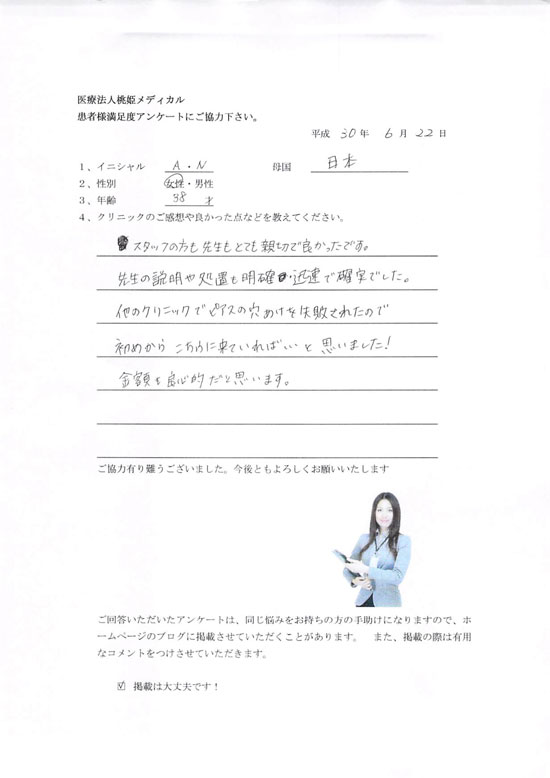 医療法人桃姫メディカル
患者様満足度アンケートにご協力下さい。
平成 30 年 6 月 22 日
1、イニシャル A・N 母国 日本
2、性別 女性・男性
3、年齢 38 才
4、クリニックのご感想や良かった点などを教えてください。
スタッフの方も先生もとても親切で良かったです。
先生の説明や処置も明確・迅速で確実でした。
他のクリニックでピアスの穴あけを失敗されたので
初めから こちらに来ていればいいと思いました!
金額も良心的だと思います。
ご協力有り難うございました。今後ともよろしくお願いいたします
ご回答いただいたアンケートは、同じ悩みをお持ちの方の手助けになりますので、ホ
ームページのブログに掲載させていただくことがあります。 また、掲載の際は有用
なコメントをつけさせていただきます。
☑ 掲載は大丈夫です!